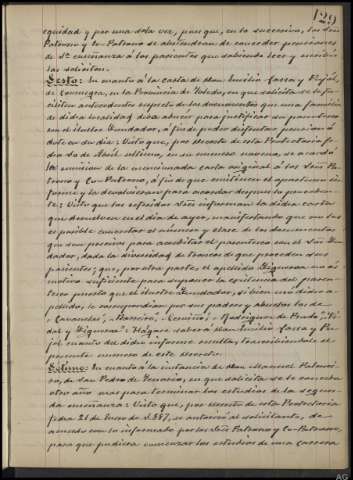 129
equidad y por una sola vez, para que, en lo sucesivo, los Sres
Patrono y Co-Patrono se abstendran de conceder pensiones
de 2ª enseñanza á los parientes que sabiendo leer y escribir
las soliciten.
Sesto: En cuanto á la carta de Don Emilio
de Consuegra, en la Provincia de Toledo, en que solicita se le fa-
ciliten antecedentes respecto de los documentos que una familia
de dicha localidad deba aducir para justificar su parentesco
con el ilustre Fundador, á fin de poder disfrutar pension ó
dote en su dia: Visto que, por decreto de este Protectorio fe-
cha 30 de Abril ultimo, en su numero noveno, se acordó
la remision de la mencionada carta original á los Sres Pa-
trono y Co-Patrono, á fin de que emitieran el oportuno in-
forme y la devolvieran para acordar despues lo proceden-
te: Visto que los referidos Sres informan la dicha carta
que devuelven en el dia de ayer, manifestando que no les
es posible concretar el número y clase de los documentos
que son precisos para acreditar el parentesco con el Sr. Fun-
dador, dada la diversidad de troncos de que proceden sus
parientes; que, por otra parte, el apellido Figueroa no es
motivo suficiente para suponer la existencia del paren-
tesco puesto que el ilustre Fundador, si bien usó dicho a-
pellido, le correspondian por sus padres y abuelos los de
"Caramés", "Romero", "Rodriguez de Prado", "Vi-
dal y Figueroa". Hágase saber á Don Emilio
cuanto del dicho informe resulta, transcribiendole el
presente numero de este decreto.
Setimo: En cuanto á la instancia de Don Manuel
de San Pedro de en que solicita se le conceda
otro año mas para terminar los estudios de la segun-
da enseñanza: Visto que, por decreto de este Protectorio
fecha 26 de Enero de 1887, se autorizó al solicitante, de
acuerdo con lo informado por los Sres Patrono y Co-Patrono,
para que pudiera comenzar los estudios de una carrera
AG